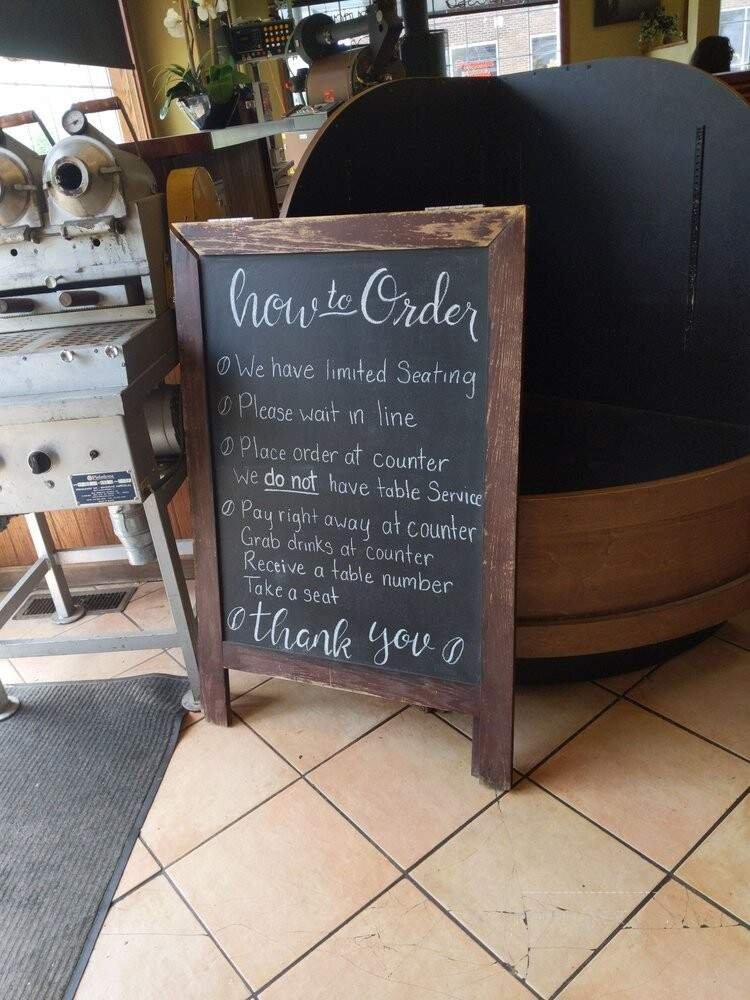 how to Order
We have limited Seating
Please wait in line
Place order at counter
we do not have table Service
Pay right away at counter
Grab drinks at counter
Receive a table number
Take a seat
thank you